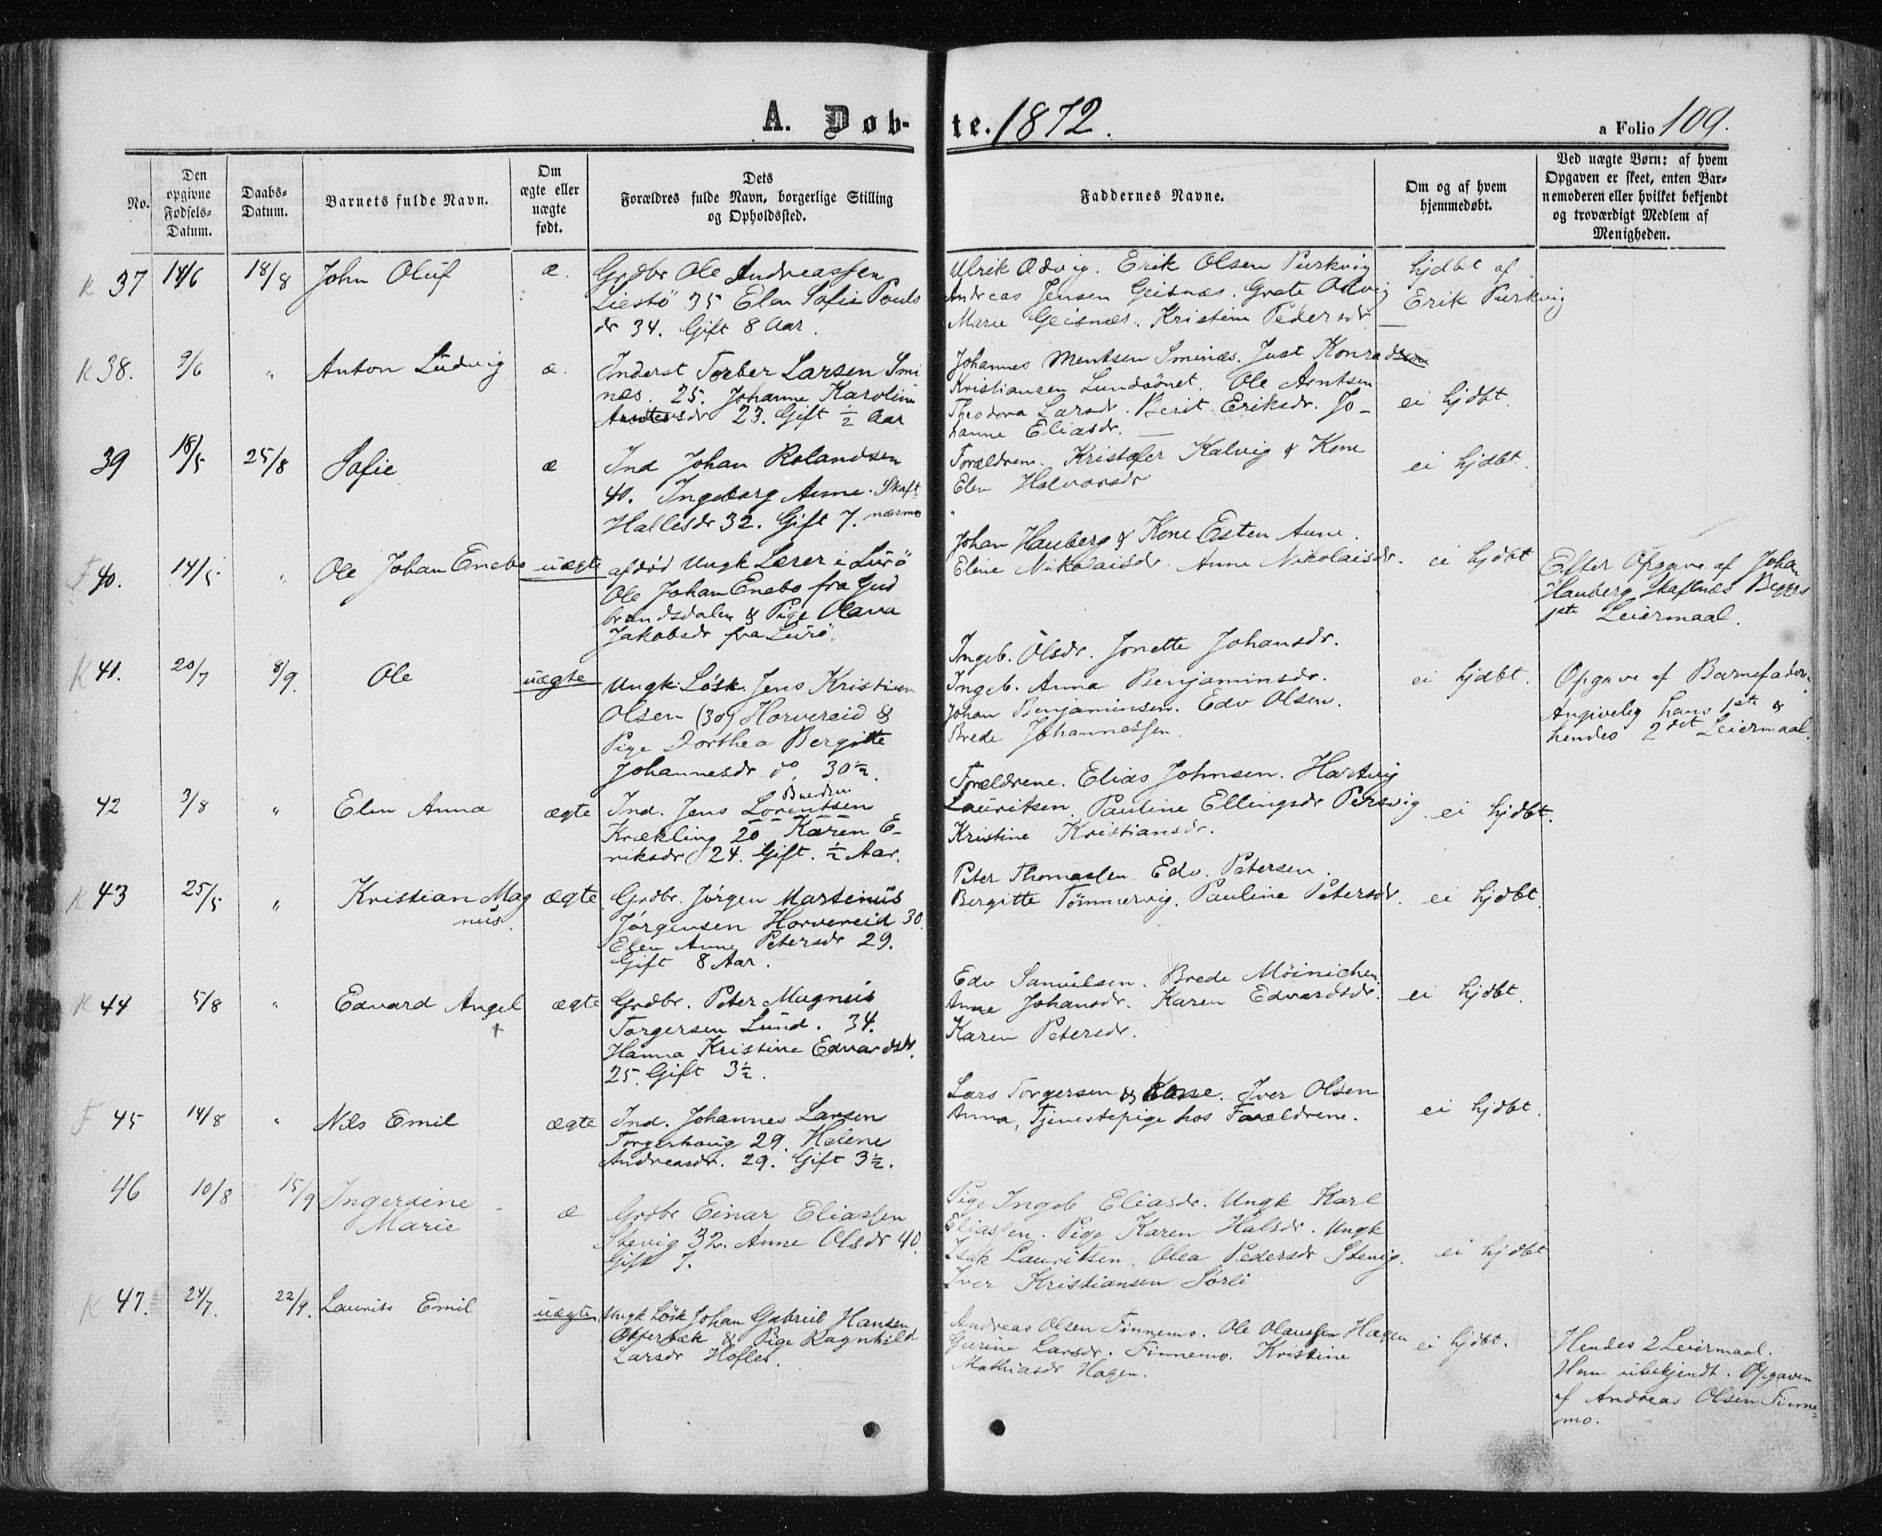 A. Døb-
te. 1872.
a Folio 109.
No.
Den opgivne Fødsels-Datum.
Daabs-Datum.
Barnets fulde Navn.
Om ægte eller uægte født.
Dets Forældres fulde Navn, borgerlige Stilling og Opholdssted.
Faddernes Navne.
Om og af hvem hjemmedøbt.
Ved uægte Børn: af hvem Opgaven er skeet, enten Barnemoderen eller hvilket bekjendt og troværdigt Medlem af Menigheden.
K 37 14/6 18/8 John Oluf æ.
Grdbr Ole Andreassen
Liestö 35 Elen Sofie Pouls
dr 34. Gift 8 Aar.
Ulrik Advig. Erik Olsen Purkvig
Andreas Jensen Geisnæs. Grete Advig
Marie Geisnæs. Kristine Pedersdr.
hjdbt af
Erik Purkvig
K 38. 9/6 " Anton Ludvig æ.
Inderst Torber Larsen Smi
næs. 25. Johanne Karoline
Andersdr 23. Gift ½ Aar
Johannes Mentsen Sminæs. Just Konradsen
Kristiansen Lundsönet. Ole Arntsen
Theodora Larsdr. Berit Eriksdr. Jo-
hanne Eliasdr.
ei hjdbt.
39 18/5 25/8 Sofie æ
Ind Johan Rolandsen
40. Ingeborg Anne Skaft-
Hallesdr 32. Gift 7. næsmo
Forældrene. Kristofer Kalvig & Kone
Elen Halvorsdr
ei hjdbt.
F 40. 14/5 " Ole Johan Enebo uægte
afdød Ungk Lærer i Lurö
Ole Johan Enebo fra Gud
brandsdalen & Pige Olava
Jakobsdr fra Lurö.
Johan Hauberg & Kone Esten Anne.
Eline Nikolaisdr. Anne Nikolaisdr.
ei hjdbt
Efter Opgave af Johan
Hauberg Skaftnæs Begges
1ste Leiermaal.
K 41. 20/7 8/9. Ole uægte
Ungk. Løsk. Jens Kristian
Olsen (30) Horvereid &
Pige Dorthea Bergitte
Johannesdr do. 30½.
Ingeb. Olsdr. Jonette Johansdr.
Ingeb. Anna Benjaminsdr.
Johan Benjaminsen. Edv Olsen.
Brede Johannessen.
ei hjdbt.
Opgave af Barnefaderen.
Angivelig hans 1ste &
hendes 2det Leiermaal.
42 3/8 " Elen Anna ægte
Ind. Jens Lorentsen
Krækling 20 Karen E-
riksdr 24. Gift. ½ Aar.
Forældrene. Elias Johnsen. Hartvig
Lauritsen. Pauline Ellingsdr Persvig
Kristine Kristiansdr.
ei hjdbt.
K 43 25/5 " Kristian Mag
nus.
ægte
Grdbr. Jörgen Martinus
Jörgensen Horvereid 30.
Elen Anne Petersdr 29.
Gift 8 Aar.
Peter Thomassen. Edv. Petersen.
Bergitte Tömmervig. Pauline Petersdr.
ei hjdbt.
K 44 5/8 " Edvard Angel ægte
+
Grdbr. Peter Magnus
Torgersen Lund. 34.
Hanna Kristine Edvardsdr.
25. Gift 3½.
Edv Samuelsen. Brede Möinichen
Anne Johansdr. Karen Edvardsdr.
Karen Petersdr.
ei hjdbt.
F 45 14/8 " Nils Emil ægte
Ind. Johannes Larsen
Torgerhaug 29. Helene
Andreasdr. 29. Gift 3½.
Lars Torgersen & Kone. Iver Olsen
Anna, Tjenestepige hos Forældrene.
ei hjdbt.
46 10/8 15/9 Ingerdine
Marie
æ
Grdbr Einar Eliassen
Stevig 32. Anne Olsdr 40.
Gift 7.
Pige Ingeb Eliasdr. Ungk Karl
Eliassen. Pige Karen Halsdr. Ungk
Isak Lauritsen. Olea Pedersdr Stevig.
Iver Kristiansen Sörli
ei hjdbt
K 47. 24/7. 22/9. Laurits Emil uægte
Ungk Løsk Johan Gabriel Hansen
Otterbæk & Pige Ragnhild
Larsdr Hofles.
Andreas Olsen Finnemo. Ole Olaussen Hagen
Gurine Larsdr. Finnemo. Kristine
Mathiasdr Hagen.
ei hjdbt.
Hendes 2 Leiermaal.
Han ubekjendt. Opgaven
af Andreas Olsen Finne-
mo.